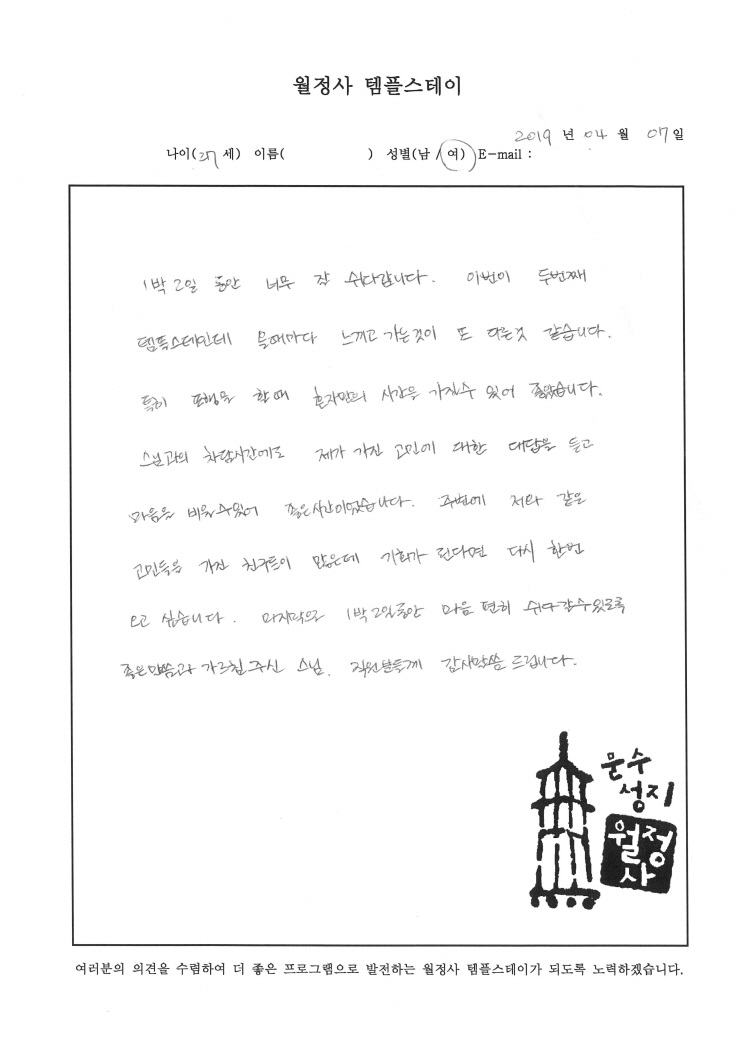 월정사 템플스테이
2019 년 04 월 07일
나이(27 세) 이름( ) 성별(남 / 여) E-mail :
1박 2일 동안 너무 잘 쉬다갑니다. 이번이 두번째
템플스테인데 올때마다 느끼고 가는것이 또 다른것 같습니다.
특히 포행을 할때 혼자만의 시간을 가질수 있어 좋았습니다.
스님과의 차담시간에도 제가 가진 고민에 대한 대답을 듣고
마음을 비울수있어 좋은시간이었습니다. 주변에 저와 같은
고민들을 가진 친구들이 많은데 기회가 된다면 다시 한번
오고 싶습니다. 마지막으로 1박 2일동안 마음 편히 쉬다갈수있도록
좋은말씀과 가르침 주신 스님, 직원분들께 감사말씀 드립니다.
문수
성지
월정
사
여러분의 의견을 수렴하여 더 좋은 프로그램으로 발전하는 월정사 템플스테이가 되도록 노력하겠습니다.